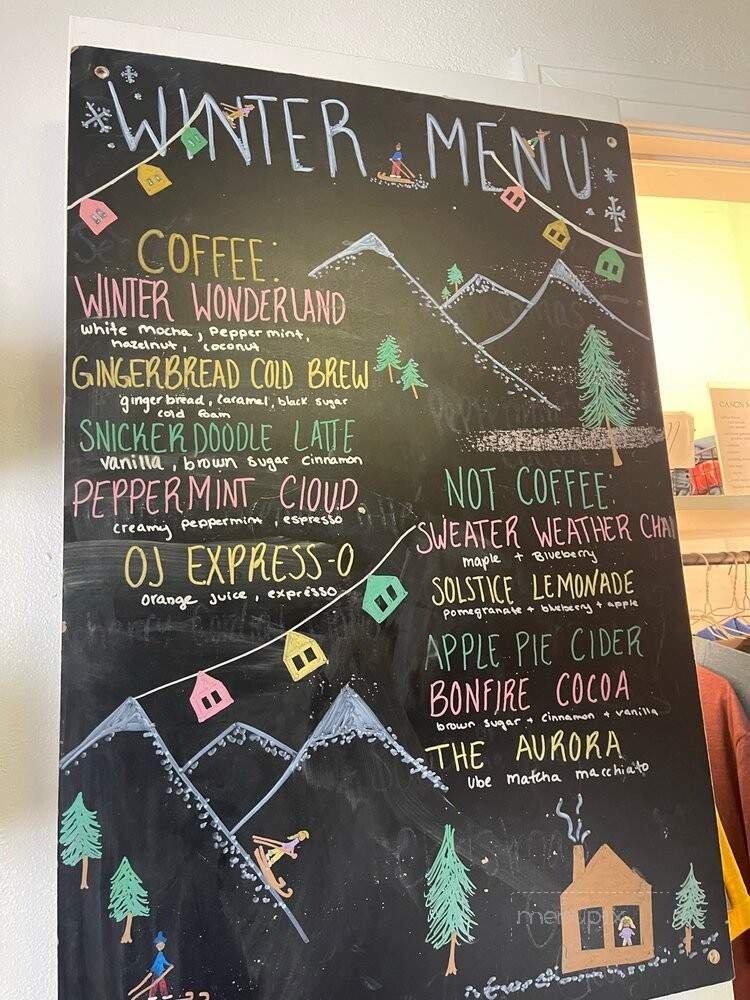 WINTER MENU
COFFEE:
WINTER WONDERLAND
white mocha, peppermint,
hazelnut, coconut
GINGERBREAD COLD BREW
gingerbread, caramel, black sugar
cold foam
SNICKERDOODLE LATTE
vanilla, brown sugar cinnamon
PEPPERMINT CLOUD
creamy peppermint, espresso
OJ EXPRESS-O
orange juice, expresso
NOT COFFEE:
SWEATER WEATHER CHAI
maple + Blueberry
SOLSTICE LEMONADE
pomegranate + blueberry + apple
APPLE PIE CIDER
BONFIRE COCOA
brown sugar + cinnamon + vanilla
THE AURORA
Ube matcha macchiato
menupix